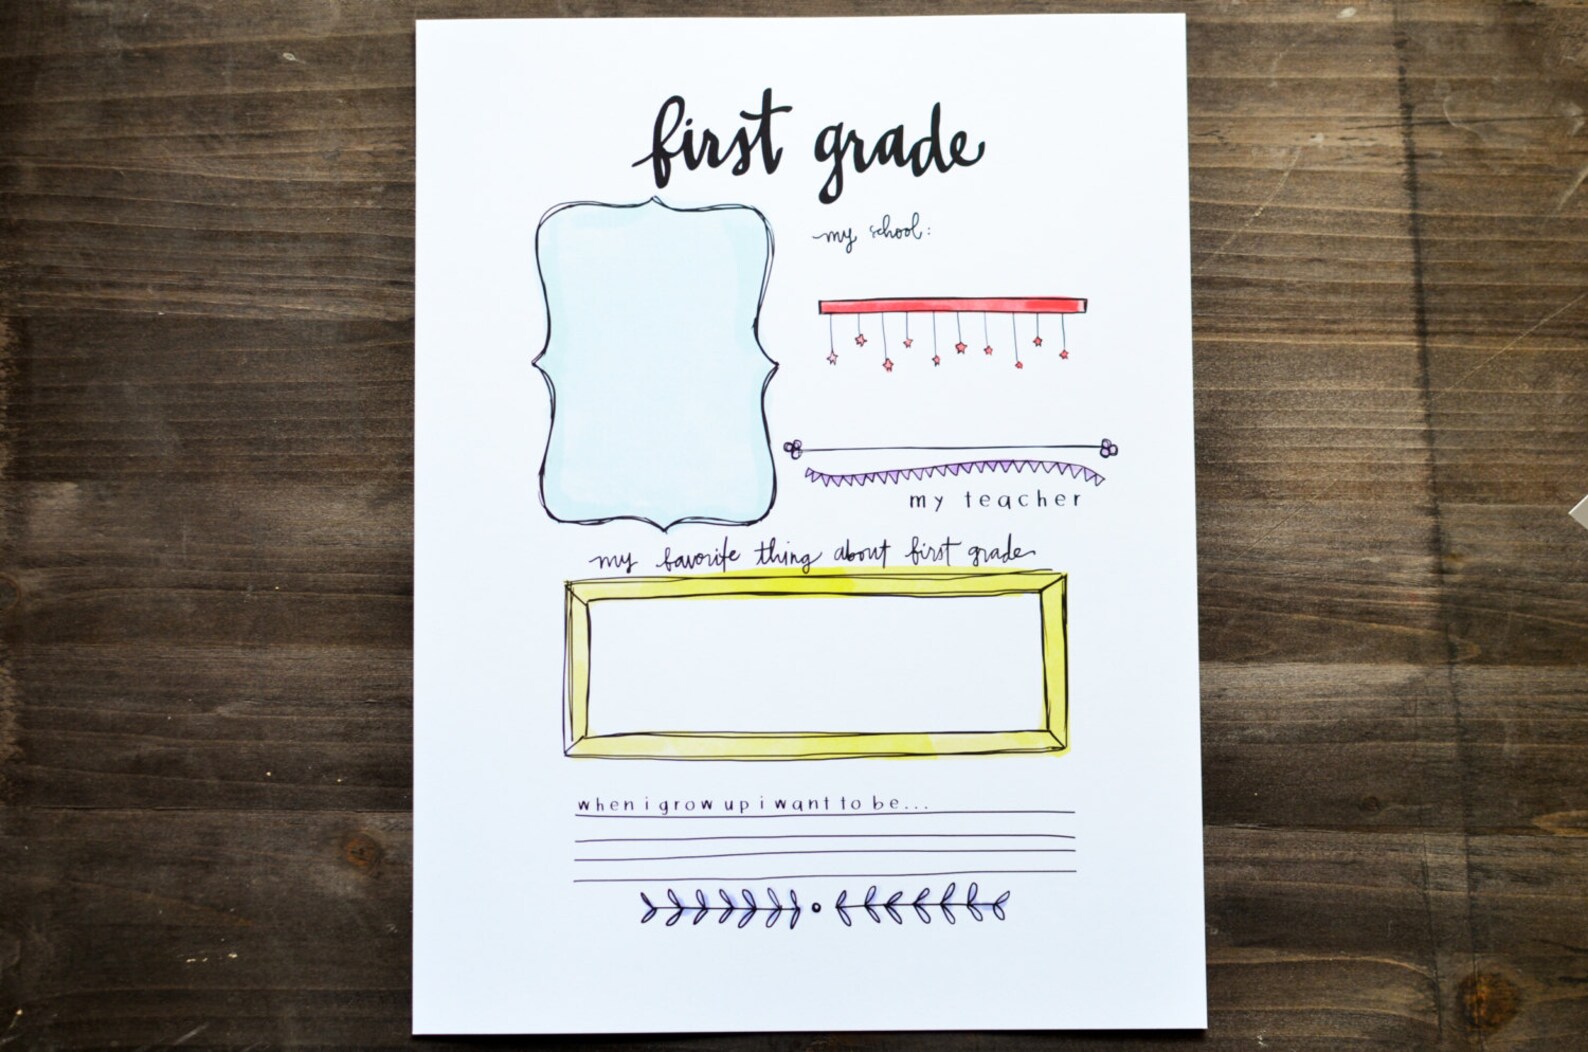 first grade
my school:
my teacher
my favorite thing about first grade
when i grow up i want to be...